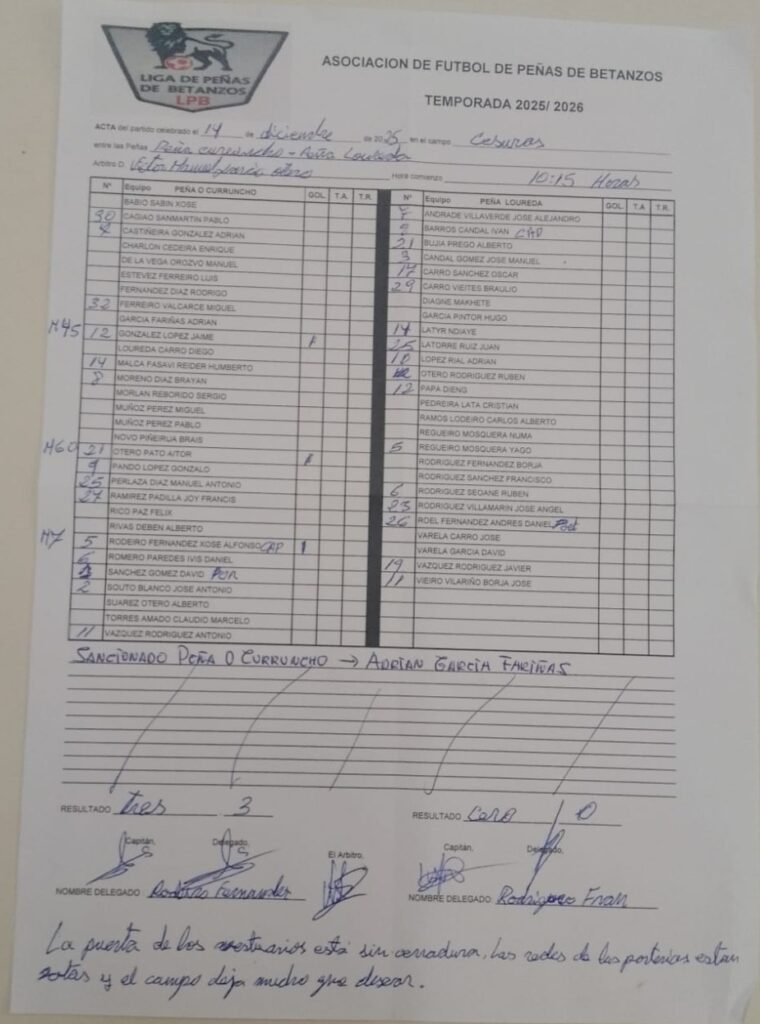 LIGA DE PEÑAS
DE BETANZOS
LPB
ASOCIACION DE FUTBOL DE PEÑAS DE BETANZOS
TEMPORADA 2025/ 2026
ACTA del partido celebrado el 14 de diciembre de 2025 en el campo Cesuras
entre las Peñas Peña curruncho - Peña Loureda
Arbitro D. Victor Manuel garcia otero Hora comienzo 10:15 Horas
Nº Equipo PEÑA O CURRUNCHO GOL T.A. T.R.
BABIO SABIN XOSE
30 CAGIAO SANMARTIN PABLO
CASTIÑEIRA GONZALEZ ADRIAN
CHARLON CEDEIRA ENRIQUE
DE LA VEGA OROZVO MANUEL
ESTEVEZ FERREIRO LUIS
FERNANDEZ DIAZ RODRIGO
32 FERREIRO VALCARCE MIGUEL
GARCIA FARIÑAS ADRIAN
M45 12 GONZALEZ LOPEZ JAIME 1
LOUREDA CARRO DIEGO
14 MALCA FASAVI REIDER HUMBERTO
8 MORENO DIAZ BRAYAN
MORLAN REBORIDO SERGIO
MUÑOZ PEREZ MIGUEL
MUÑOZ PEREZ PABLO
NOVO PIÑEIRUA BRAIS
M60 21 OTERO PATO AITOR 1
9 PANDO LOPEZ GONZALO
25 PERLAZA DIAZ MANUEL ANTONIO
27 RAMIREZ PADILLA JOY FRANCIS
RICO PAZ FELIX
RIVAS DEBEN ALBERTO
M7 5 RODEIRO FERNANDEZ XOSE ALFONSO CAP 1
6 ROMERO PAREDES IVIS DANIEL
SANCHEZ GOMEZ DAVID POR
2 SOUTO BLANCO JOSE ANTONIO
SUAREZ OTERO ALBERTO
TORRES AMADO CLAUDIO MARCELO
11 VAZQUEZ RODRIGUEZ ANTONIO
Nº Equipo PEÑA LOUREDA GOL T.A T.R.
ANDRADE VILLAVERDE JOSE ALEJANDRO
BARROS CANDAL IVAN CAP
21 BUJIA PREGO ALBERTO
3 CANDAL GOMEZ JOSE MANUEL
17 CARRO SANCHEZ OSCAR
29 CARRO VIEITES BRAULIO
DIAGNE MAKHETE
GARCIA PINTOR HUGO
14 LATYR NDIAYE
25 LATORRE RUIZ JUAN
10 LOPEZ RIAL ADRIAN
OTERO RODRIGUEZ RUBEN
12 PAPA DIENG
PEDREIRA LATA CRISTIAN
RAMOS LODEIRO CARLOS ALBERTO
REGUEIRO MOSQUERA NUMA
5 REGUEIRO MOSQUERA YAGO
RODRIGUEZ FERNANDEZ BORJA
RODRIGUEZ SANCHEZ FRANCISCO
6 RODRIGUEZ SEOANE RUBEN
23 RODRIGUEZ VILLAMARIN JOSE ANGEL
26 ROEL FERNANDEZ ANDRES DANIEL Por
VARELA CARRO JOSE
VARELA GARCIA DAVID
19 VAZQUEZ RODRIGUEZ JAVIER
11 VIEIRO VILARIÑO BORJA JOSE
SANCIONADO PEÑA O CURRUNCHO → ADRIAN GARCIA FARIÑAS
RESULTADO tres 3
RESULTADO Cero 0
Capitán, Delegado, El Arbitro, Capitán, Delegado,
NOMBRE DELEGADO Fernandez
NOMBRE DELEGADO Rodriguez Fran
La puerta de los vestuarios está sin cerradura, Las redes de las porterias estan
rotas y el campo deja mucho que desear.